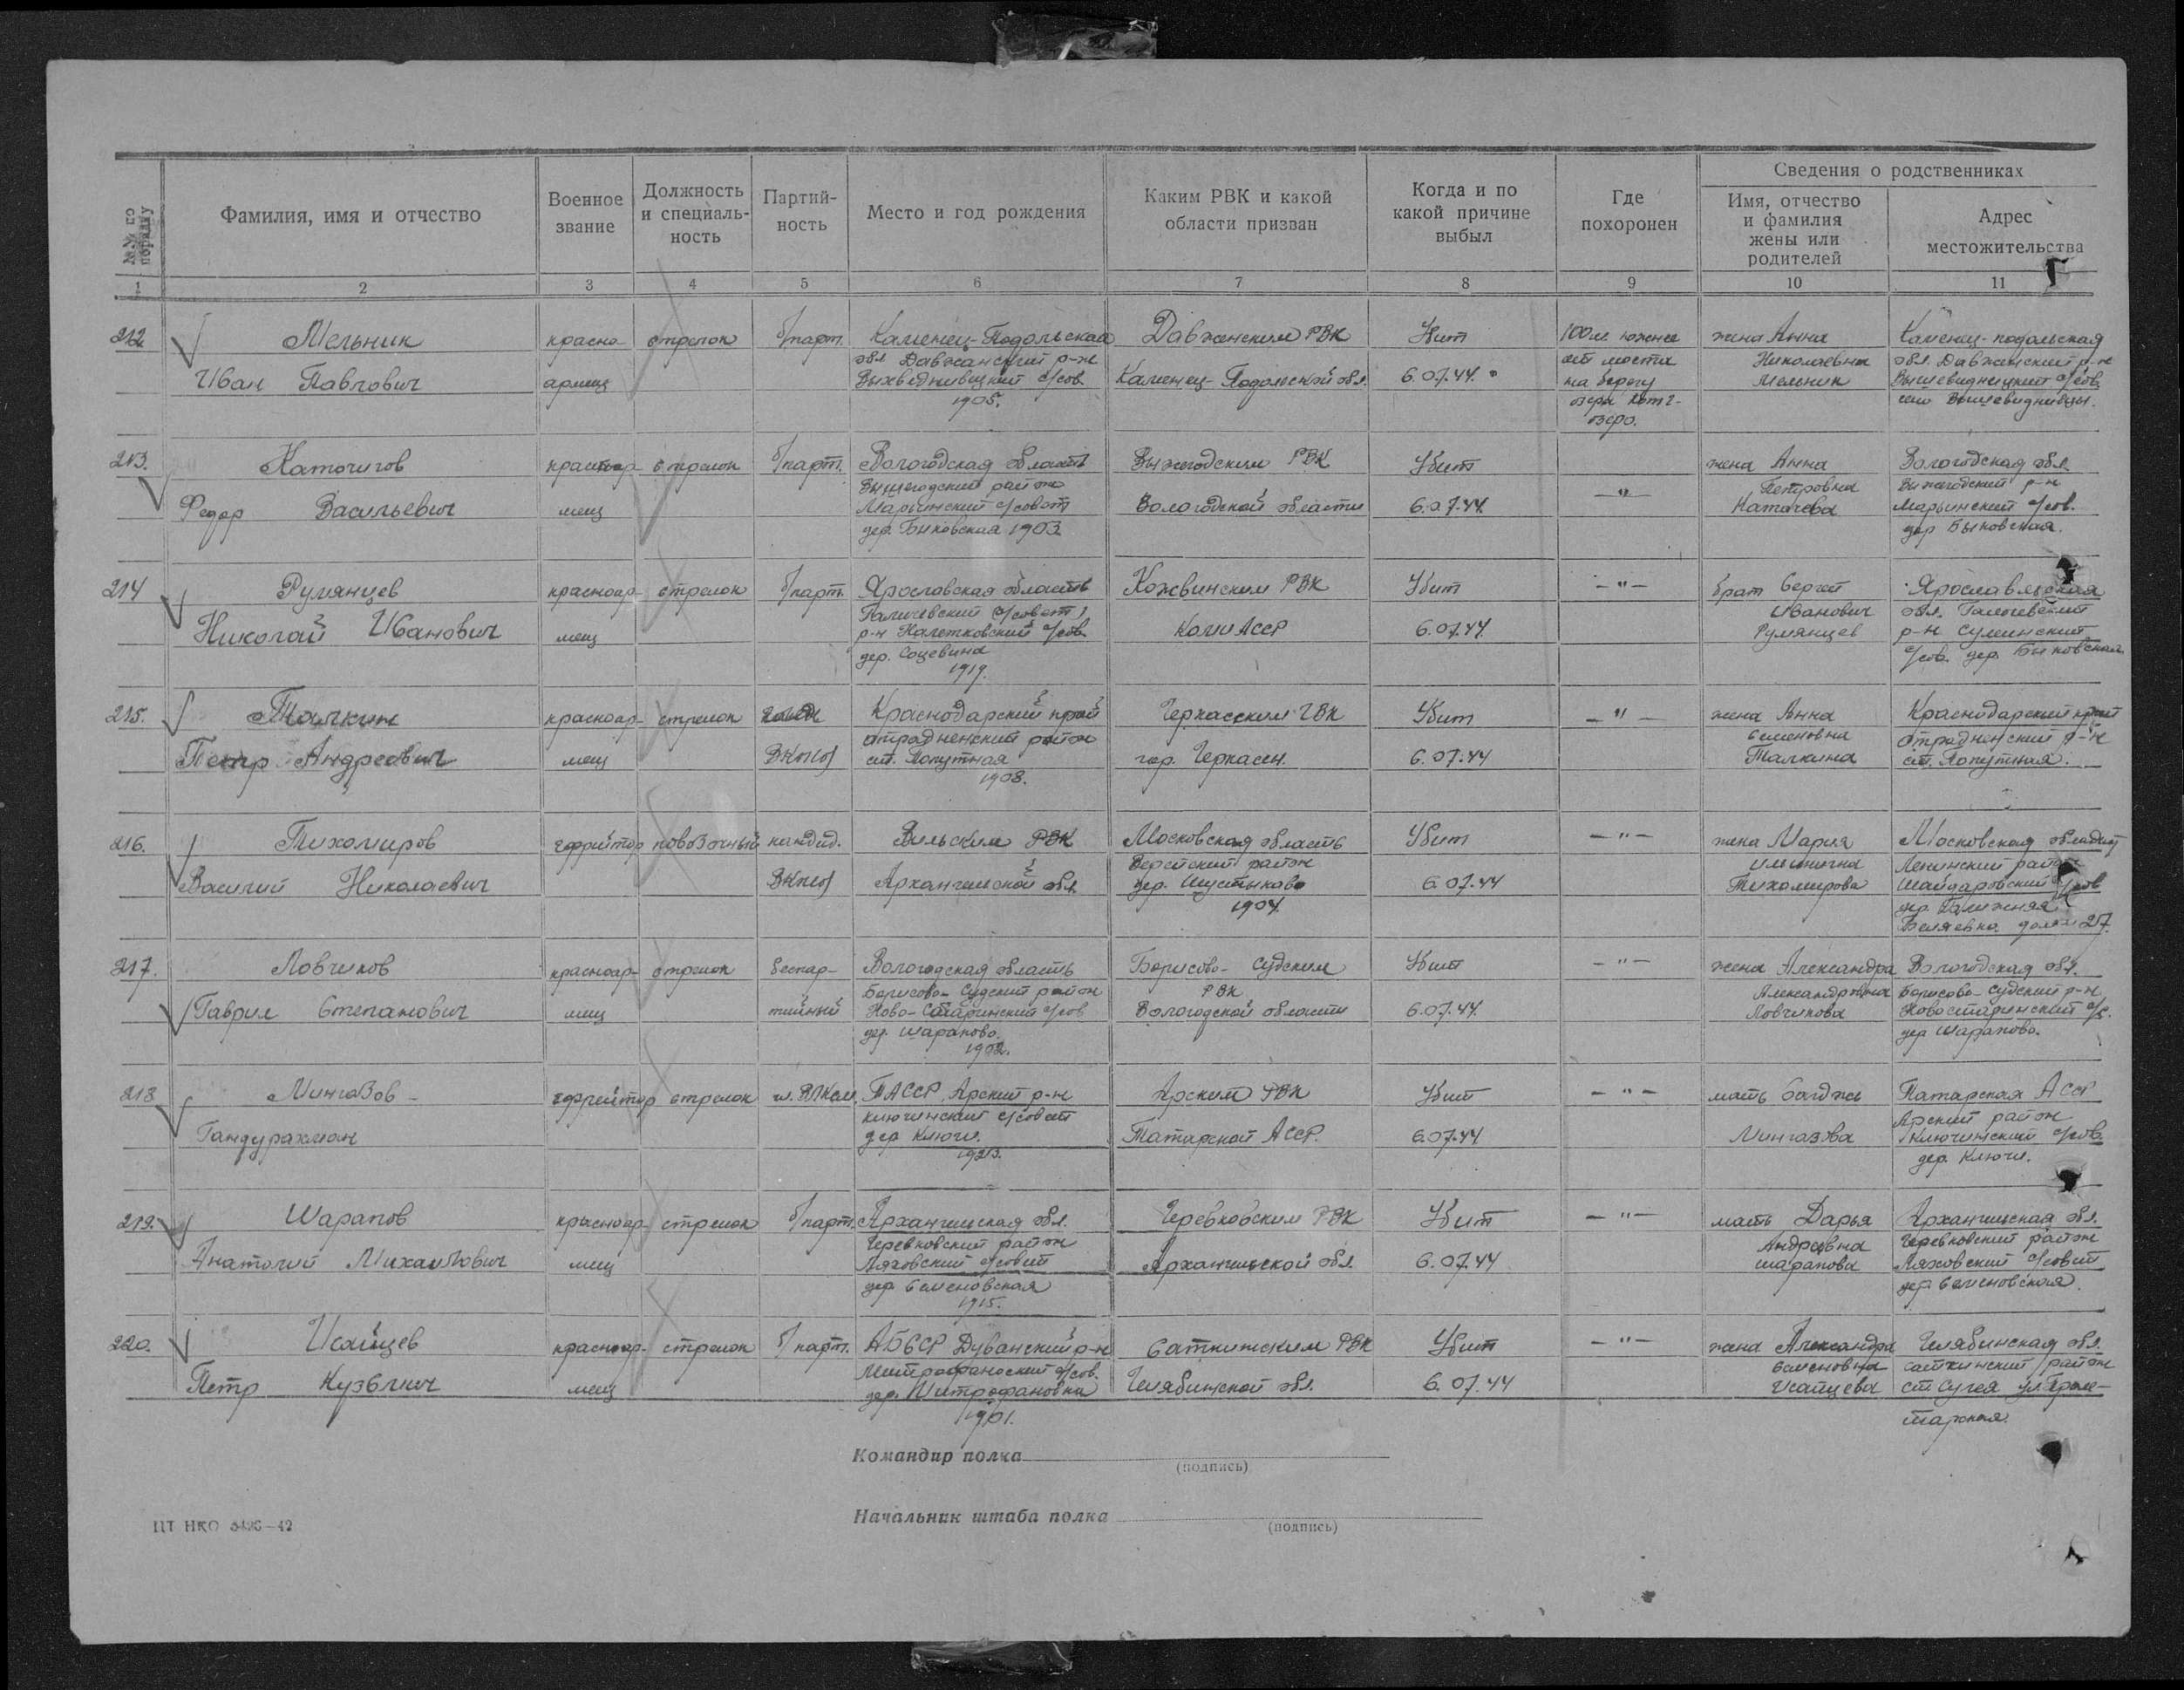 №№ по порядку
Фамилия, имя и отчество
Военное звание
Должность и специаль-ность
Партий-ность
Место и год рождения
Каким РВК и какой области призван
Когда и по какой причине выбыл
Где похоронен
Сведения о родственниках
Имя, отчество и фамилия жены или родителей
Адрес местожительства
1 2 3 4 5 6 7 8 9 10 11
212 Мельник красно- стрелок б/парт. Каменец-Подольская Давженским РВК Убит 100 м. южнее жена Анна Каменец-подольская
обл Давжанский р-н от моста Николаевна обл. Давженский р-н
Иван Павлович армеец с/сов. Каменец-Подольской обл. 6.07.44. на берегу Мельник с/сов.
1905. озера село
озеро.
213. красноар- стрелок б/парт. Вологодская область РВК Убит жена Анна Вологодская обл.
район Петровна р-н
Федор Васильевич меец Марьинский с/совет Вологодской области 6.07.44. —"— Марьинский с/сов.
дер. Быковская 1903. дер Быковская.
214 Румянцев красноар- стрелок б/парт. Ярославская область Кожвинским РВК Убит —"— брат Сергей Ярославльская
с/совет Иванович обл.
Николай Иванович меец р-н с/сов. Коми АССР 6.07.44. Румянцев р-н
дер. с/сов. дер. Быковская
1919.
215. Талкин красноар- стрелок Краснодарский край Черкасским ГВК Убит —"— жена Анна Краснодарский край
отрадненский район Семеновна отрадненский р-н
Петр Андреевич меец ВКП(б) ст. Попутная гор. Черкассы. 6.07.44 Талкина ст. Попутная.
1908.
216. Тихомиров ефрейтор повозочный кандид. Вельским РВК Московская область Убит —"— жена Мария Московская область
Верейский район Ильинична Ленинский район
Василий Николаевич ВКП(б) Архангельской обл. дер. 6.07.44 Тихомирова с/сов
1904. дер.
217. Ловчиков красноар- стрелок беспар- Вологодская область Борисово-Судским Убит —"— жена Александра Вологодская обл.
Борисово-Судский район РВК Александровна Борисово-Судский р-н
Гаврил Степанович меец тийный с/сов Вологодской области 6.07.44. Ловчикова с/с.
дер. Шарапово. дер Шарапово.
1902.
218 Мингазов ефрейтор стрелок чл. ВЛКСМ. ТАССР, Арский р-н Арским РВК Убит —"— мать Татарская АССР
ключинский с/совет Арский район
Гандурахман дер Ключи. Татарской АССР. 6.07.44 Мингазова Ключинский с/сов.
дер. Ключи.
219. Шарапов красноар- стрелок б/парт. Архангельская обл. Черевковским РВК Убит —"— мать Дарья Архангельская обл.
Черевковский район Андревна Черевковский район
Анатолий Михайлович меец Ляховский с/совет Архангельской обл. 6.07.44 Шарапова Ляховский с/совет
дер. Семеновская дер Семеновская.
1915.
220. Исайцев красноар- стрелок б/парт. АБССР Дуванский р-н Саткинским РВК Убит —"— жена Александра Челябинская обл.
Митрофановский с/сов. Семеновна саткинский район
Петр Кузьмич меец дер. Митрофановка Челябинской обл. 6.07.44 Исайцева ст Сулея
1901.
Командир полка
(подпись)
Начальник штаба полка
(подпись)